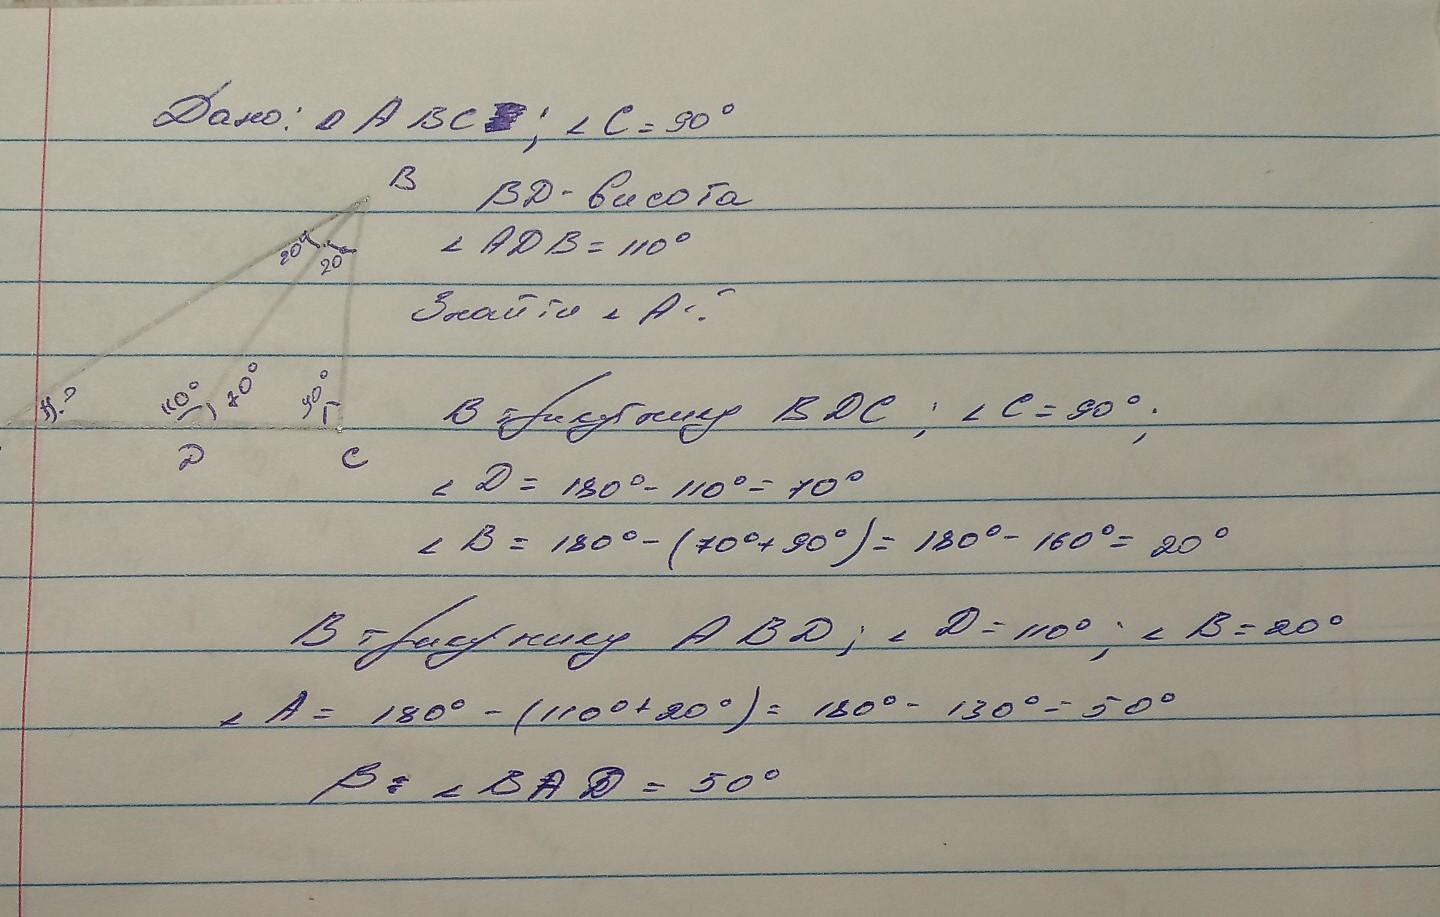 Дано: △ АВС; ∠ С = 90°
В
BD - висота
20°
20°
∠ ADB = 110°
Знайти ∠ А-?
?
110°
70°
90°
D
C
В трикутнику BDC; ∠ C = 90°;
∠ D = 180° - 110° = 70°
∠ B = 180° - (70° + 90°) = 180° - 160° = 20°
В трикутнику ABD; ∠ D = 110°; ∠ B = 20°
∠ A = 180° - (110° + 20°) = 180° - 130° = 50°
В: ∠ BAD = 50°